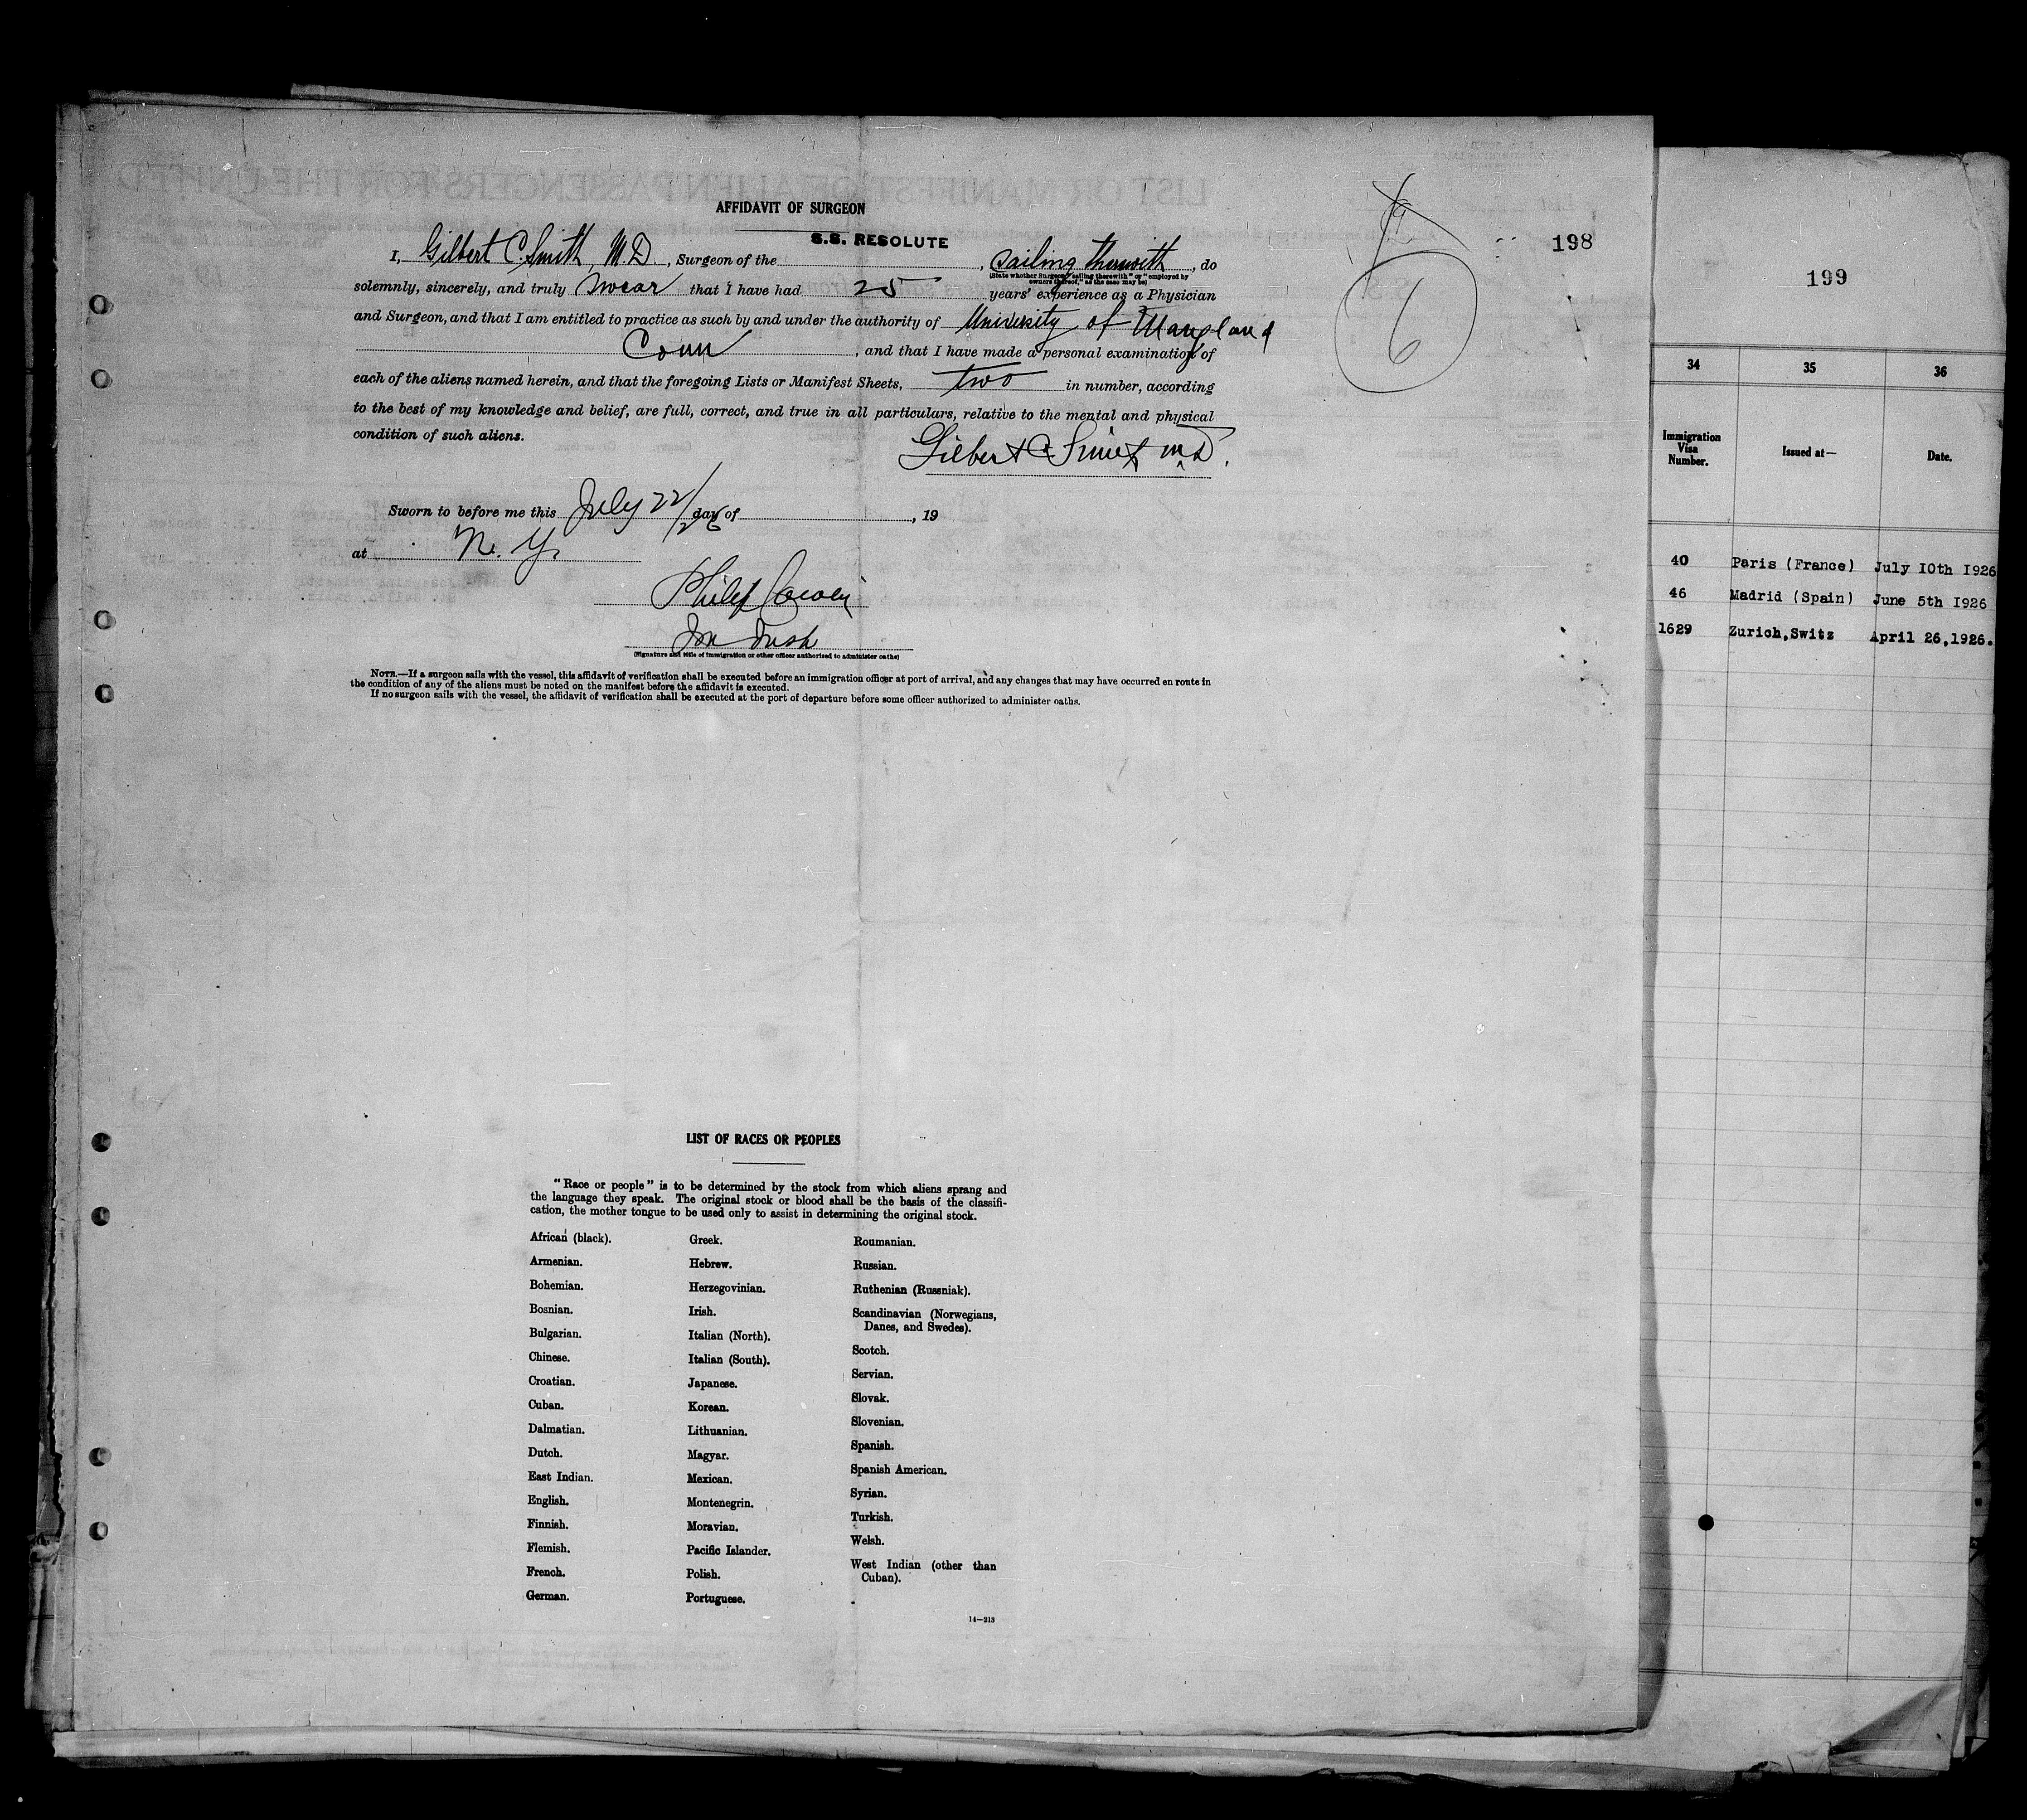 AFFIDAVIT OF SURGEON
S.S. RESOLUTE
198
I, Gilbert C. Smith, M.D., Surgeon of the , sailing therewith, do
(State whether Surgeon "sailing therewith" or "employed by
owners thereof," as the case may be)
solemnly, sincerely, and truly swear that I have had 25 years' experience as a Physician
and Surgeon, and that I am entitled to practice as such by and under the authority of University of Maryland
Conn , and that I have made a personal examination of
each of the aliens named herein, and that the foregoing Lists or Manifest Sheets, two in number, according
to the best of my knowledge and belief, are full, correct, and true in all particulars, relative to the mental and physical
condition of such aliens.
Gilbert C Smith M.D.
Sworn to before me this July 22/26 day of , 19
at N. Y.
Philip Cowen
(Signature and title of immigration or other officer authorized to administer oaths)
NOTE.—If a surgeon sails with the vessel, this affidavit of verification shall be executed before an immigration officer at port of arrival, and any changes that may have occurred en route in
the condition of any of the aliens must be noted on the manifest before the affidavit is executed.
If no surgeon sails with the vessel, the affidavit of verification shall be executed at the port of departure before some officer authorized to administer oaths.
6
LIST OF RACES OR PEOPLES
"Race or people" is to be determined by the stock from which aliens sprang and
the language they speak. The original stock or blood shall be the basis of the classifi-
cation, the mother tongue to be used only to assist in determining the original stock.
African (black).
Armenian.
Bohemian.
Bosnian.
Bulgarian.
Chinese.
Croatian.
Cuban.
Dalmatian.
Dutch.
East Indian.
English.
Finnish.
Flemish.
French.
German.
Greek.
Hebrew.
Herzegovinian.
Irish.
Italian (North).
Italian (South).
Japanese.
Korean.
Lithuanian.
Magyar.
Mexican.
Montenegrin.
Moravian.
Pacific Islander.
Polish.
Portuguese.
Roumanian.
Russian.
Ruthenian (Russniak).
Scandinavian (Norwegians,
Danes, and Swedes).
Scotch.
Servian.
Slovak.
Slovenian.
Spanish.
Spanish American.
Syrian.
Turkish.
Welsh.
West Indian (other than
Cuban).
14—213
199
34 35 36
Immigration
Visa
Number.
Issued at—
Date.
40 Paris (France) July 10th 1926
46 Madrid (Spain) June 5th 1926
1629 Zurich,Switz April 26,1926.